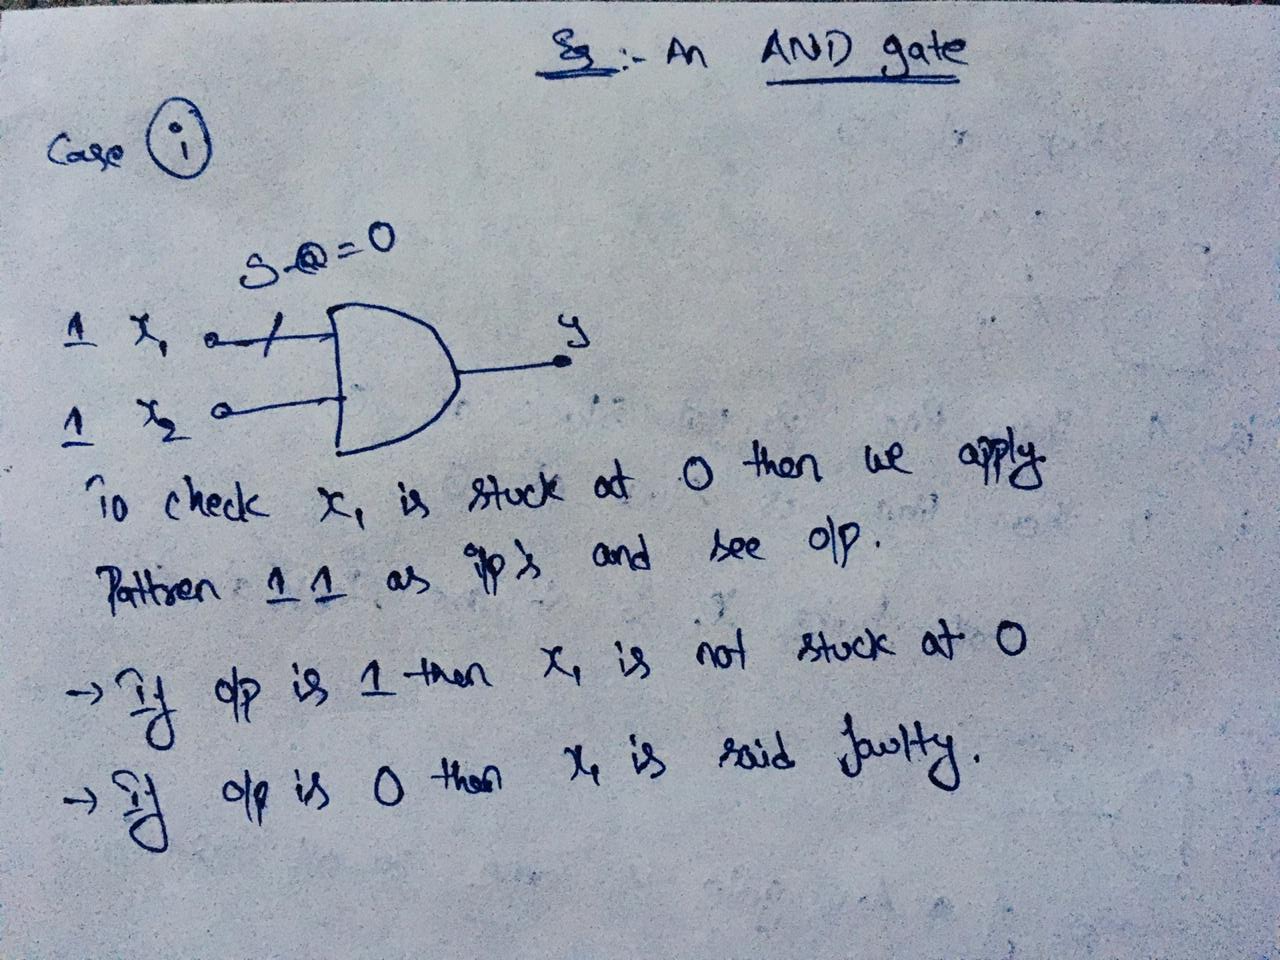 Eg :- An AND gate
Case i
S-@=0
1 x₁
y
1 x₂
To check x₁ is stuck at 0 then we apply
Pattren 1 1 as i/p's and see o/p.
→ if o/p is 1 then x₁ is not stuck at 0
→ if o/p is 0 then x₁ is said faulty.